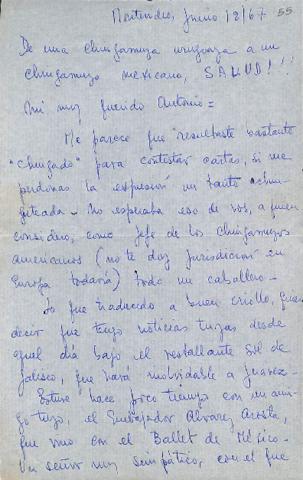 Montevideo, junio 12/67 55
De una chingamuza uruguaya a un
chingamuzo mexicano, SALUD!!!
Mi muy querido Antonio=
Me parece que resultaste bastante
"chingado" para contestar cartas, si me
perdonas la expresión un tanto
No esperaba eso de vos, a quien
considero, como Jefe de los Chingamuzos
americanos (no te doy jurisdicción en
Europa todavía) todo un caballero.-
Lo que traducido a buen criollo, quiere
decir que tengo noticias tuyas desde
aquel día bajo el restallante Sol de
Jalisco, que hará inolvidable a Juarez.-
Estuve hace poco tiempo con un ami-
go tuyo, el Embajador Alvarez Acosta,
que vino con el Ballet de México.-
Un señor muy simpático, con el que